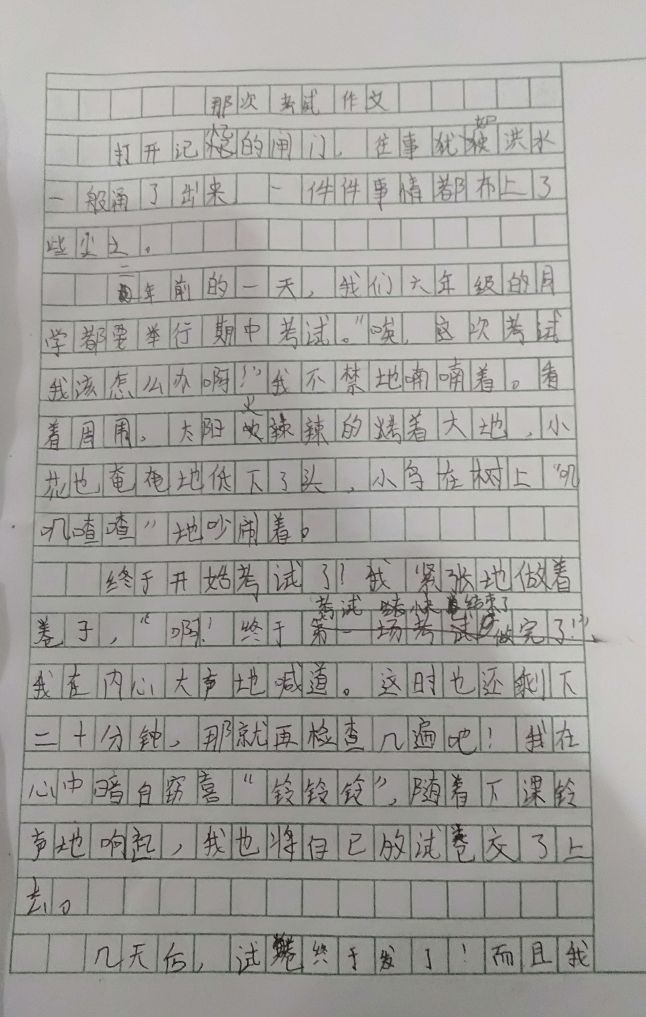 那次考试作文
打开记忆的闸门，往事犹如洪水
一般涌了出来 一件件事情都布上了
些尘土。
二年前的一天，我们六年级的同
学都要举行期中考试。"唉，这次考试
我该怎么办啊！"我不禁地喃喃着。看
着周围，太阳火辣辣的烤着大地，小
花也奄奄地低下了头，小鸟在树上"叽
叽喳喳"地吵闹着。
终于开始考试了！我紧张地做着
卷子，"啊！终于考试快结束了
做完了！"，
我在内心大声地喊道。这时也还剩下
二十分钟，那就再检查几遍吧！我在
心中暗自窃喜"铃铃铃"，随着下课铃
声地响起，我也将自已的试卷交了上
去。
几天后，试卷终于发了！而且我